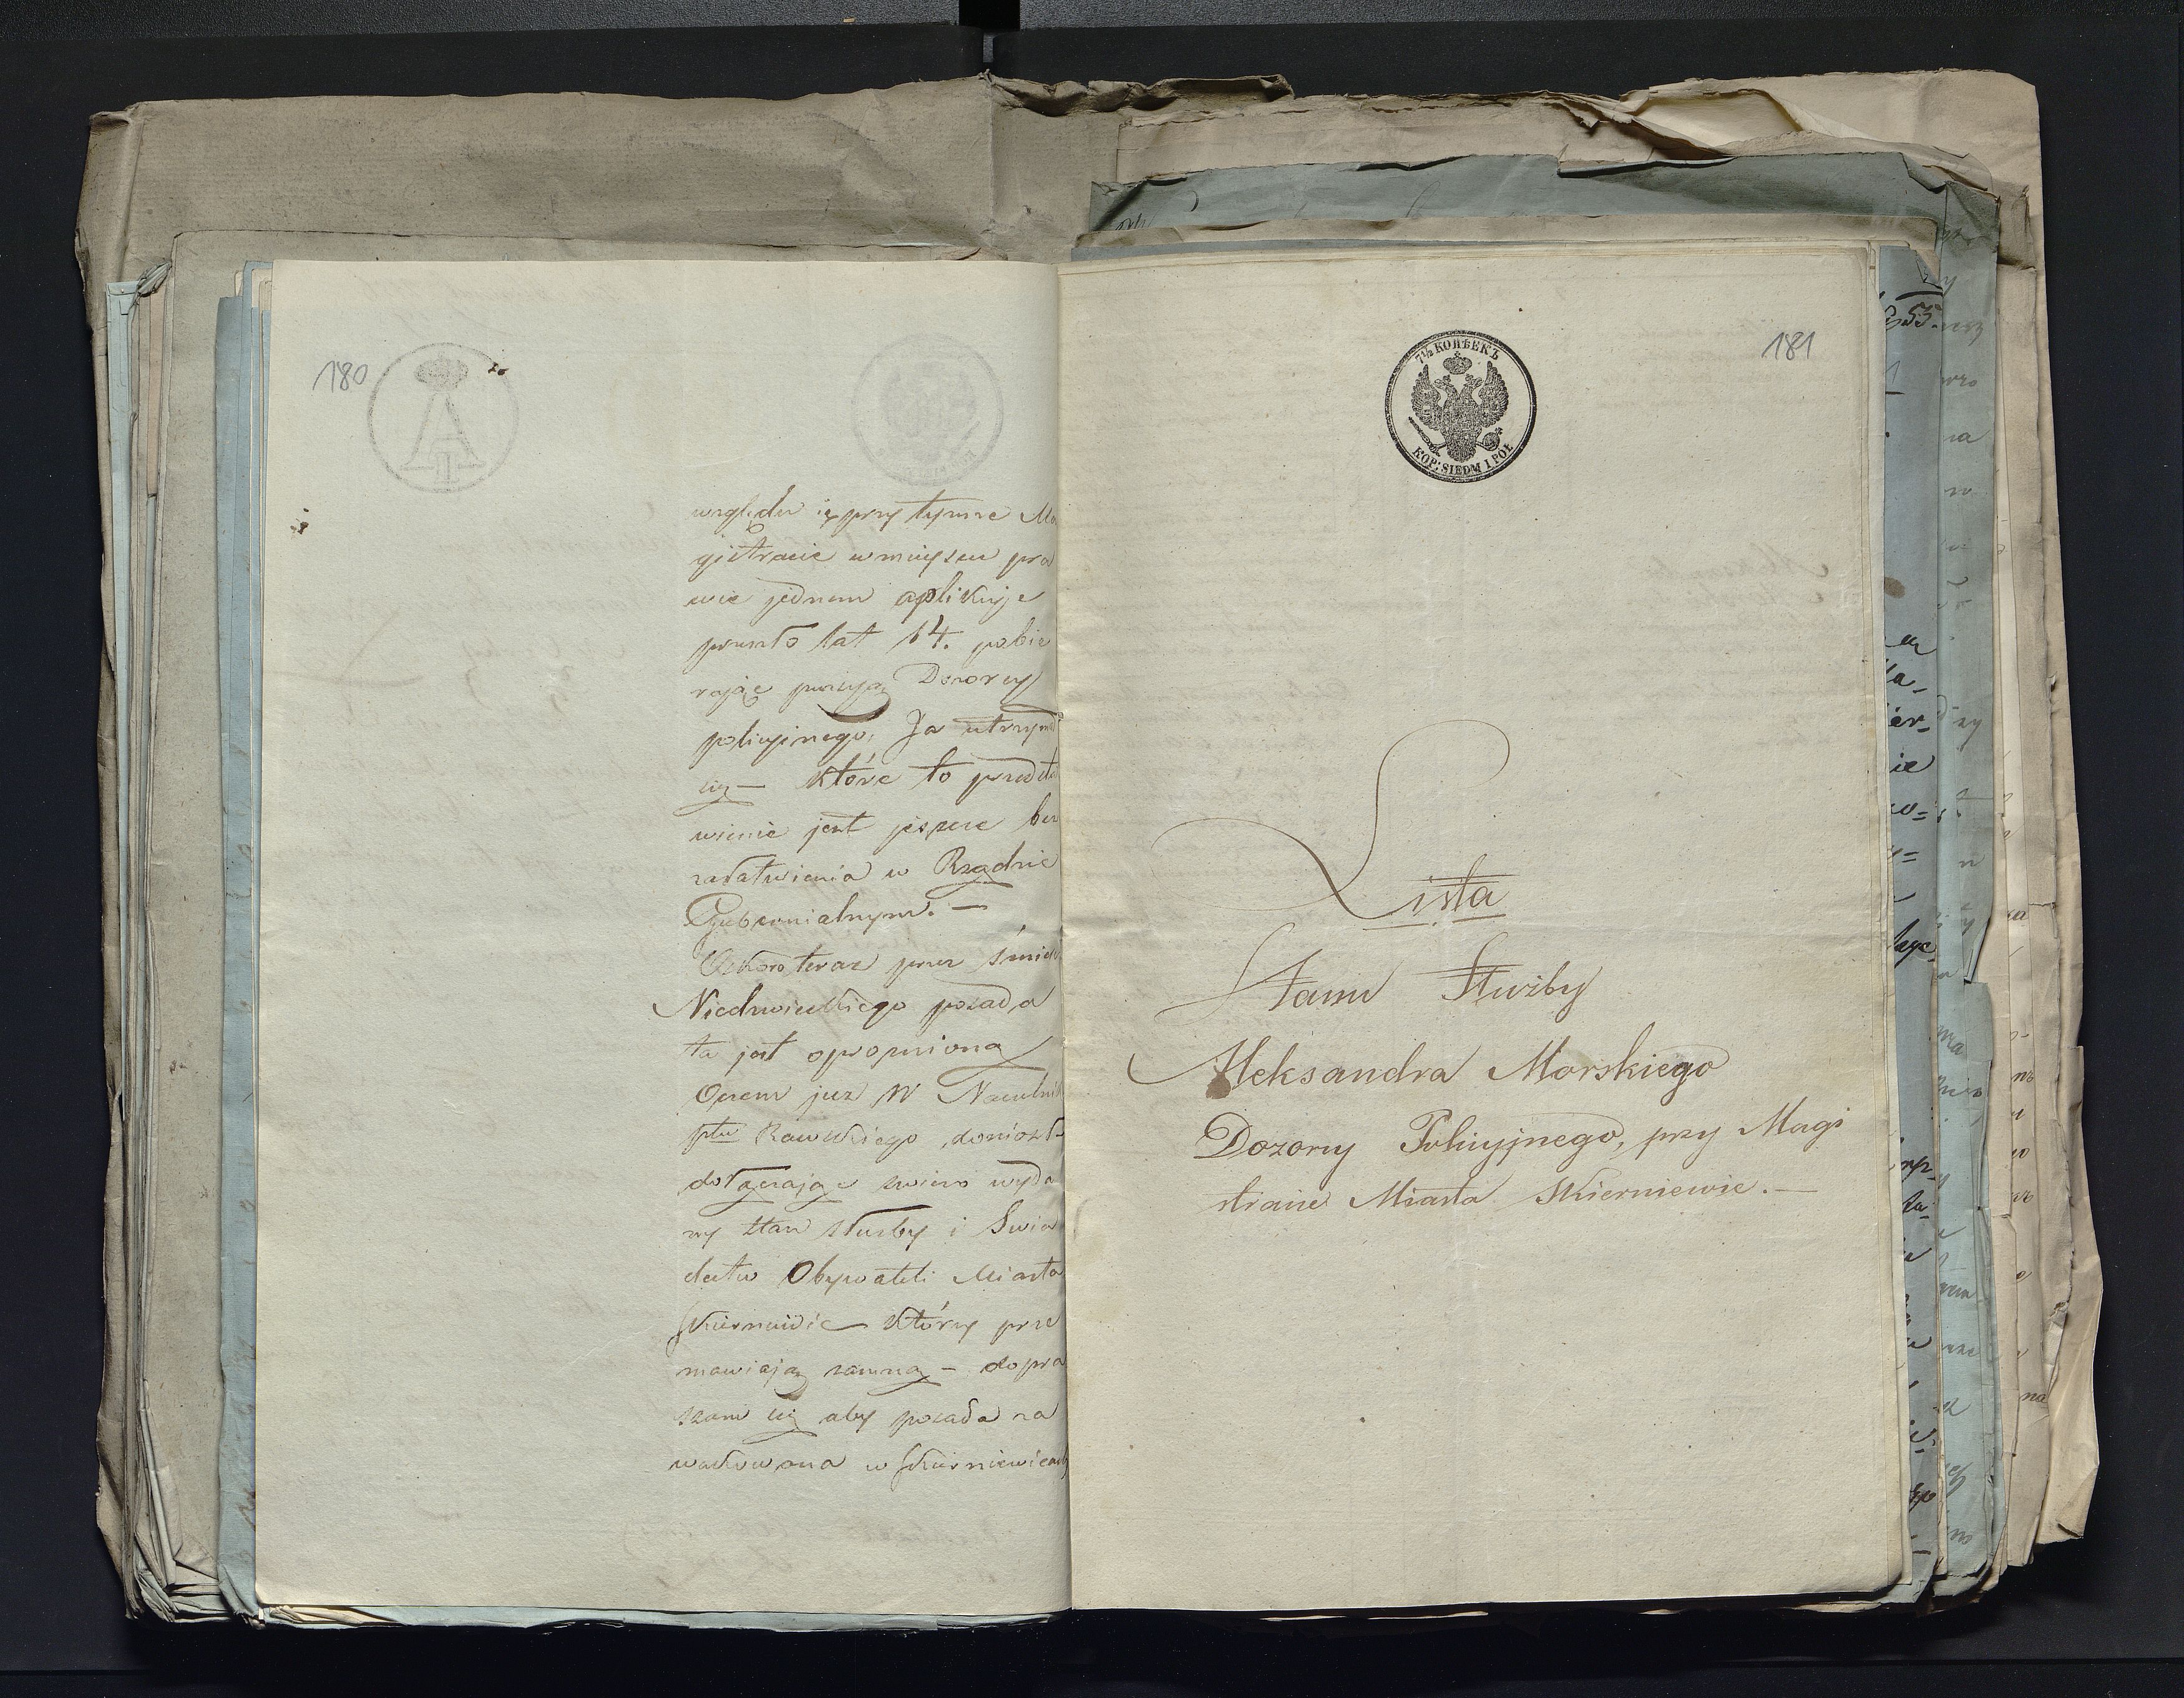 180
względu iż przy tymże Ma
gistracie w miejscu pra
wie jednem aplikuje
przeszło lat 14. pobie
rając pensyą Dozorcy
policyjnego, Ja utrzym
się — które to przedsta
wienie jest jeszcze bez
załatwienia w Rządzie
Gubernialnym. —
A skoro teraz przez śmierć
Niedzwieckiego posada
ta jest opróżnioną
Oczem już W Naczelnik
ptu Rawskiego doniósł
dołączając swieżo wyda
ny stan służby i Swia
dectwo Obywateli Miasta
Skierniewic którzy prze
mawiają zamną — dopra
szam się aby posada za
wakowana w Skierniewicach
181
7½ КОПѢЕКЪ
KOP: SIEDM I PÓŁ
Lista
Stanu Służby
Aleksandra Morskiego
Dozorcy Policyjnego, przy Magi
stracie Miasta Skierniewic. —